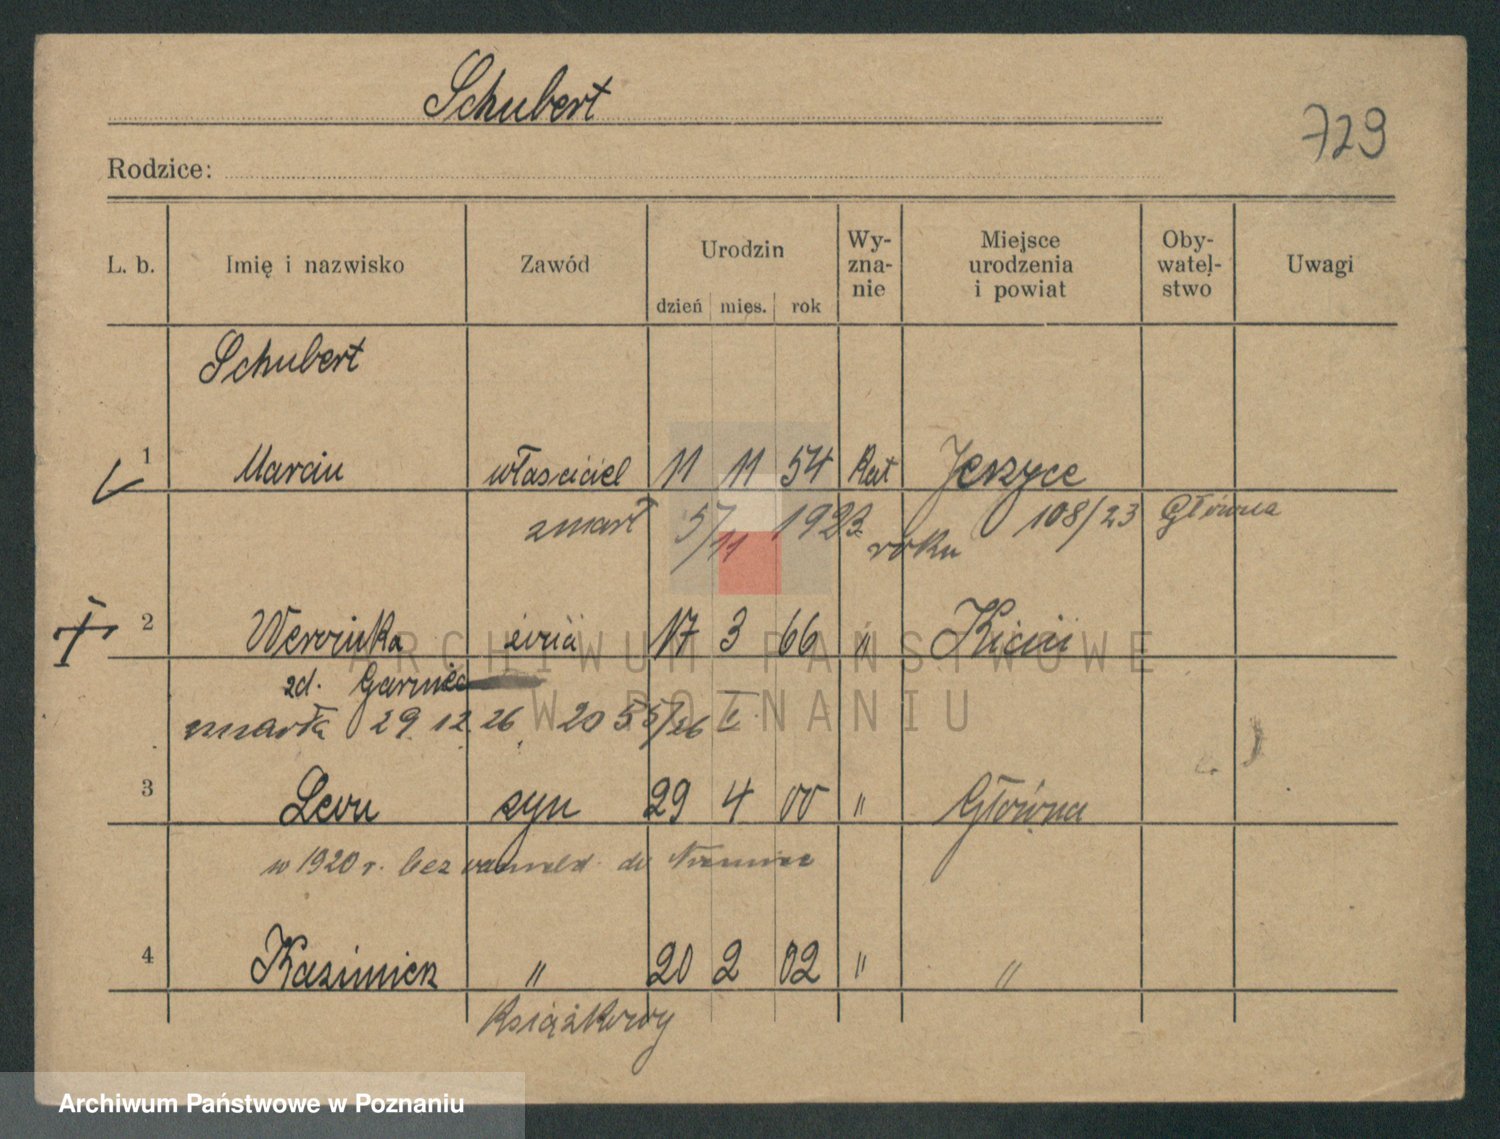 Schubert
729
Rodzice:
L. b. Imię i nazwisko Zawód Urodzin dzień mies. rok Wy-zna-nie Miejsce urodzenia i powiat Oby-watel-stwo Uwagi
Schubert
1 Marcin właściciel 11 11 54 Kat Jerzyce
zmarł 5/11 1923 roku 108/23 Główna
2 Weronika żona 17 3 66 " Kicin
zd. Garniec
zmarła 29 12 26 55/26
3 Leon syn 29 4 00 " Główna
w 1920 r. bez do Niemiec
4 Kazimierz " 20 2 02 " "
Książkowy
ARCHIWUM PAŃSTWOWE
W POZNANIU
Archiwum Państwowe w Poznaniu